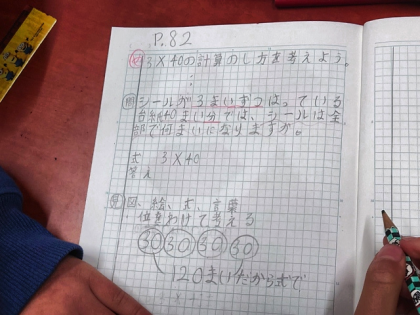 P.82
め 3×40の計算のし方を考えよう。
問 シールが3まいずつはっている
台紙40まい分では、シールは全
部で何まいになりますか。
式 3×40
答え
図、絵、式、言葉
位をわけて考える
30 30 30 30
120まいだから式で